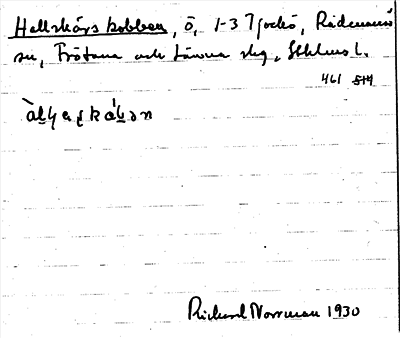 Hallskärs kobben, ö, 1-3 Tjockö, Rådmansö
sn, Frötuna och Länna slg, Sthlms l.
461 514
Richard Norrman 1930